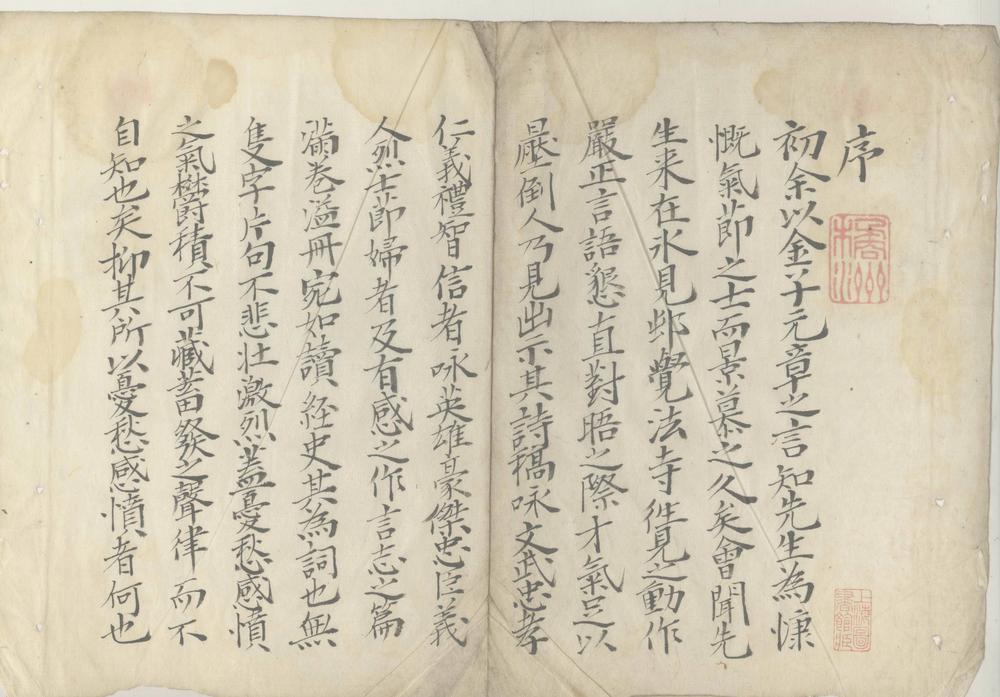 序
初余以金子元章之言知先生為慷
慨氣節之士而景慕之久矣會聞先
生来在水見邨覺法寺徃見之動作
嚴正言語懇直對晤之際才氣足以
壓倒人乃見出示其詩稿咏文武忠孝
仁義禮智信者咏英雄豪傑忠臣義
人烈士節婦者及有感之作言志之篇
滿巻溢冊宛如讀経史其為詞也無
隻字片句不悲壮激烈盖憂愁感憤
之氣欝積不可藏蓄發之聲律而不
自知也矣抑其所以憂愁感憤者何也
上海圖
書館藏